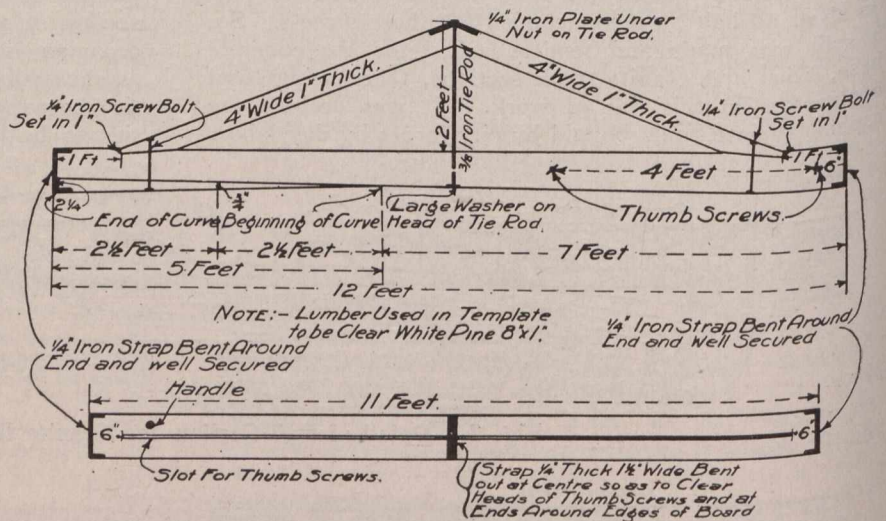 ¼" Iron Plate Under
Nut on Tie Rod.
¼" Iron Screw Bolt
Set in 1"
4" Wide 1" Thick.
2 Feet
⅜ Iron Tie Rod
4" Wide 1" Thick.
¼" Iron Screw Bolt
Set in 1"
1 Ft
1 Ft
6"
4 Feet
2¼
¾"
End of Curve
Beginning of Curve
Large Washer on
Head of Tie Rod.
Thumb Screws.
2½ Feet
2½ Feet
7 Feet
5 Feet
12 Feet
NOTE:- Lumber Used in Template
to be Clear White Pine 8"x1".
¼" Iron Strap Bent Around
End and well Secured
¼" Iron Strap Bent Around
End and Well Secured
Handle
11 Feet.
6"
6"
Slot For Thumb Screws.
Strap ¼" Thick 1½" Wide Bent
out at Centre so as to Clear
Heads of Thumb Screws and at
Ends Around Edges of Board